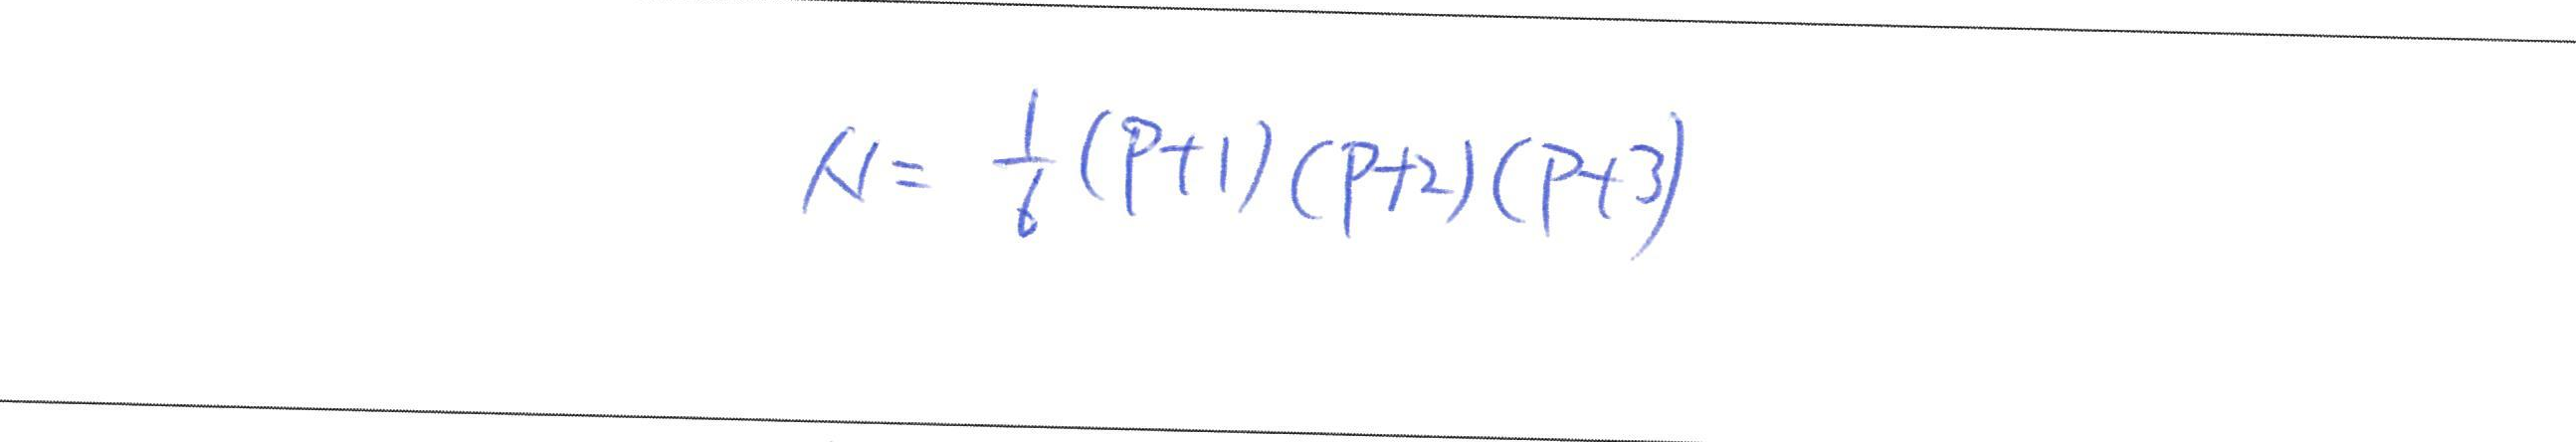 N = \frac{1}{6}(p+1)(p+2)(p+3)